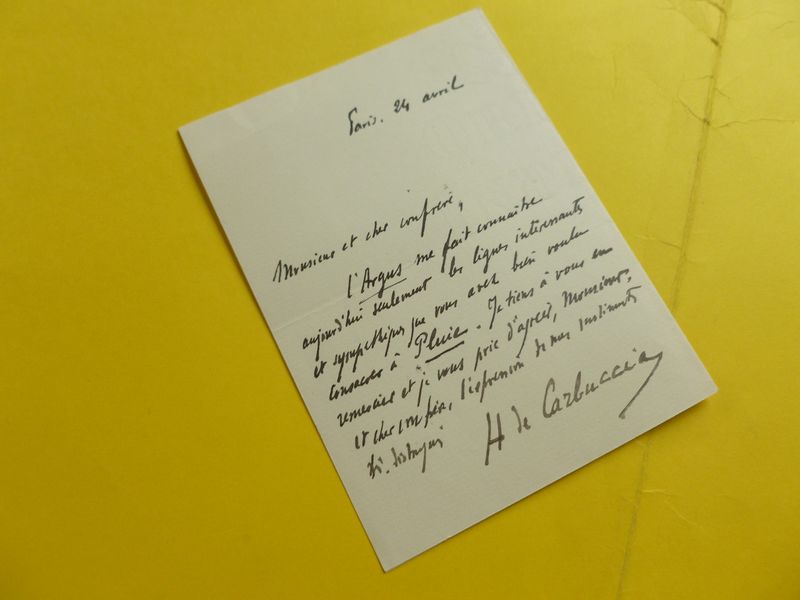 Paris. 24 avril
Monsieur et cher confrère,
l'Argus me fait connaître
aujourd'hui seulement les lignes intéressantes
et sympathiques que vous avez bien voulu
consacrer à Pluie. Je tiens à vous en
remercier et je vous prie d'agréer, Monsieur
et cher confrère, l'expression de mes sentiments
distingués
H de Carbuccia